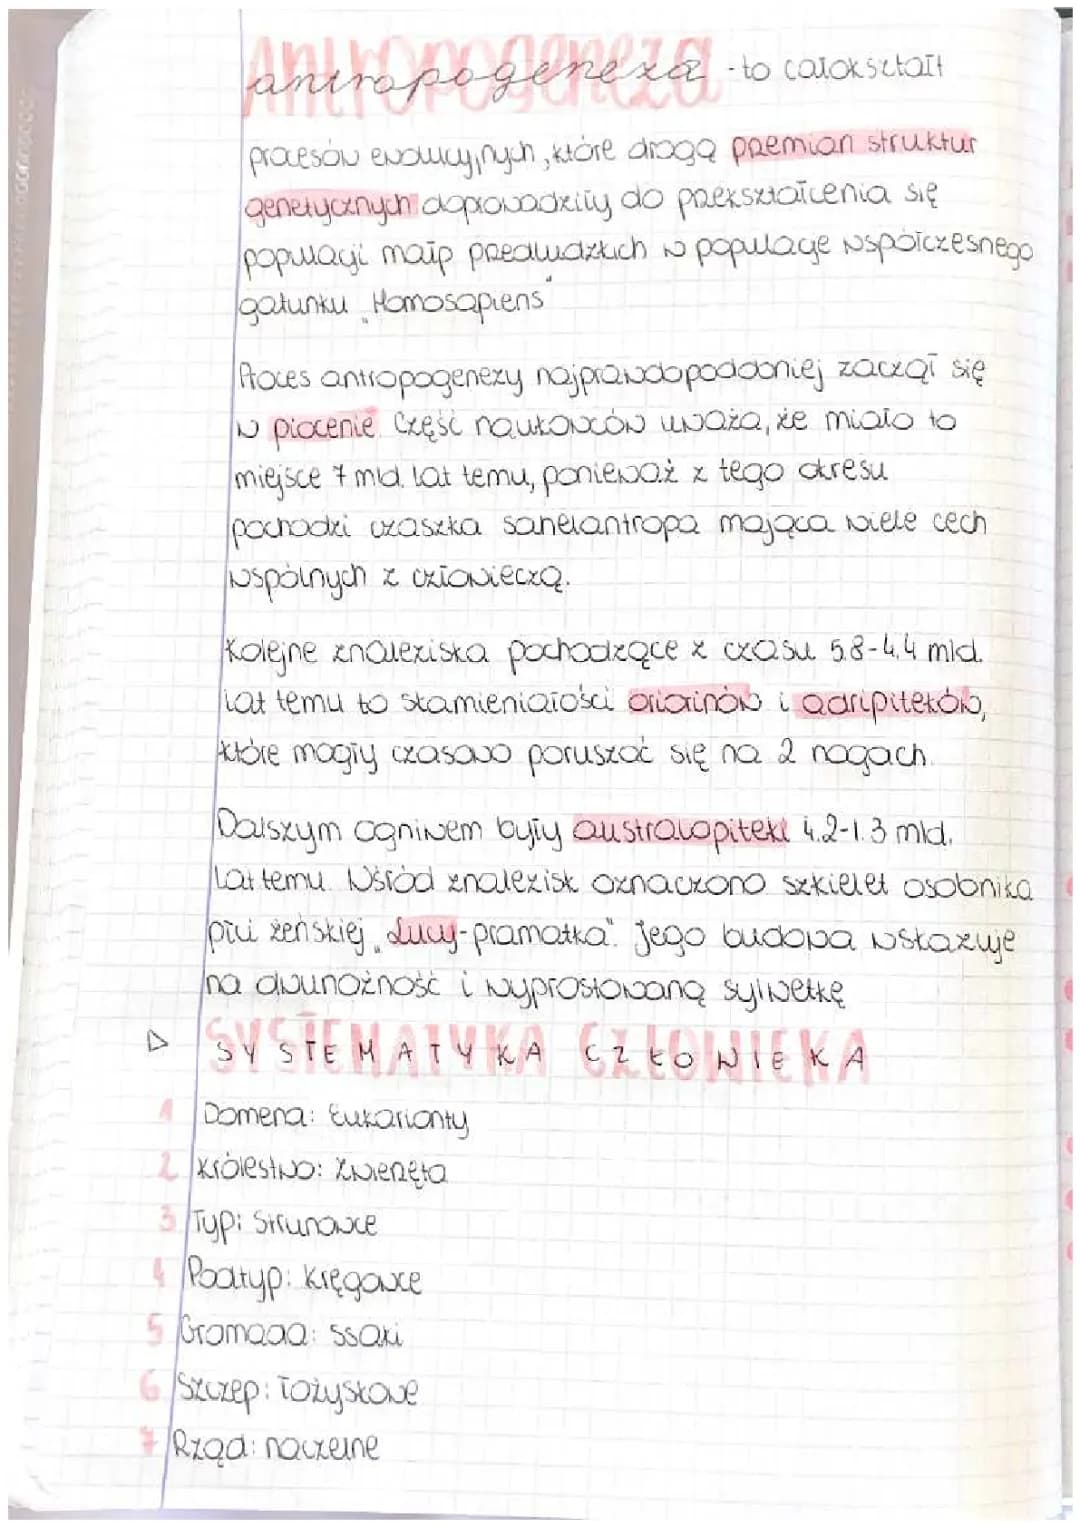 antropogeneza - to całokształt
procesów ewolucyjnych, które drogą przemian struktur
genetycznych doprowadziły do przekształcenia się
populacji małp przedludzkich w populacje współczesnego
gatunku „Homosapiens"
Proces antropogenezy najprawdopodobniej zaczął się
w pliocenie. Część naukowców uważa, że miało to
miejsce 7 mld. lat temu, ponieważ z tego okresu
pochodzi czaszka sahelantropa mająca wiele cech
wspólnych z człowieczą.
Kolejne znaleziska pochodzące z czasu 5.8-4.4 mld.
lat temu to skamieniałości ororinów i adripiteków,
które mogły czasowo poruszać się na 2 nogach.
Dalszym ogniwem były australopiteki 4.2-1.3 mld.
lat temu. Wśród znalezisk oznaczono szkielet osobnika
płci żeńskiej „Lucy-pramatka". Jego budowa wskazuje
na dwunożność i wyprostowaną sylwetkę
▷ SYSTEMATYKA CZŁOWIEKA
1 Domena: Eukarionty
2 Królestwo: Zwierzęta
3 Typ: Strunowce
4 Podtyp: Kręgowce
5 Gromada: ssaki
6 Szczep: łożyskowe
7 Rząd: naczelne